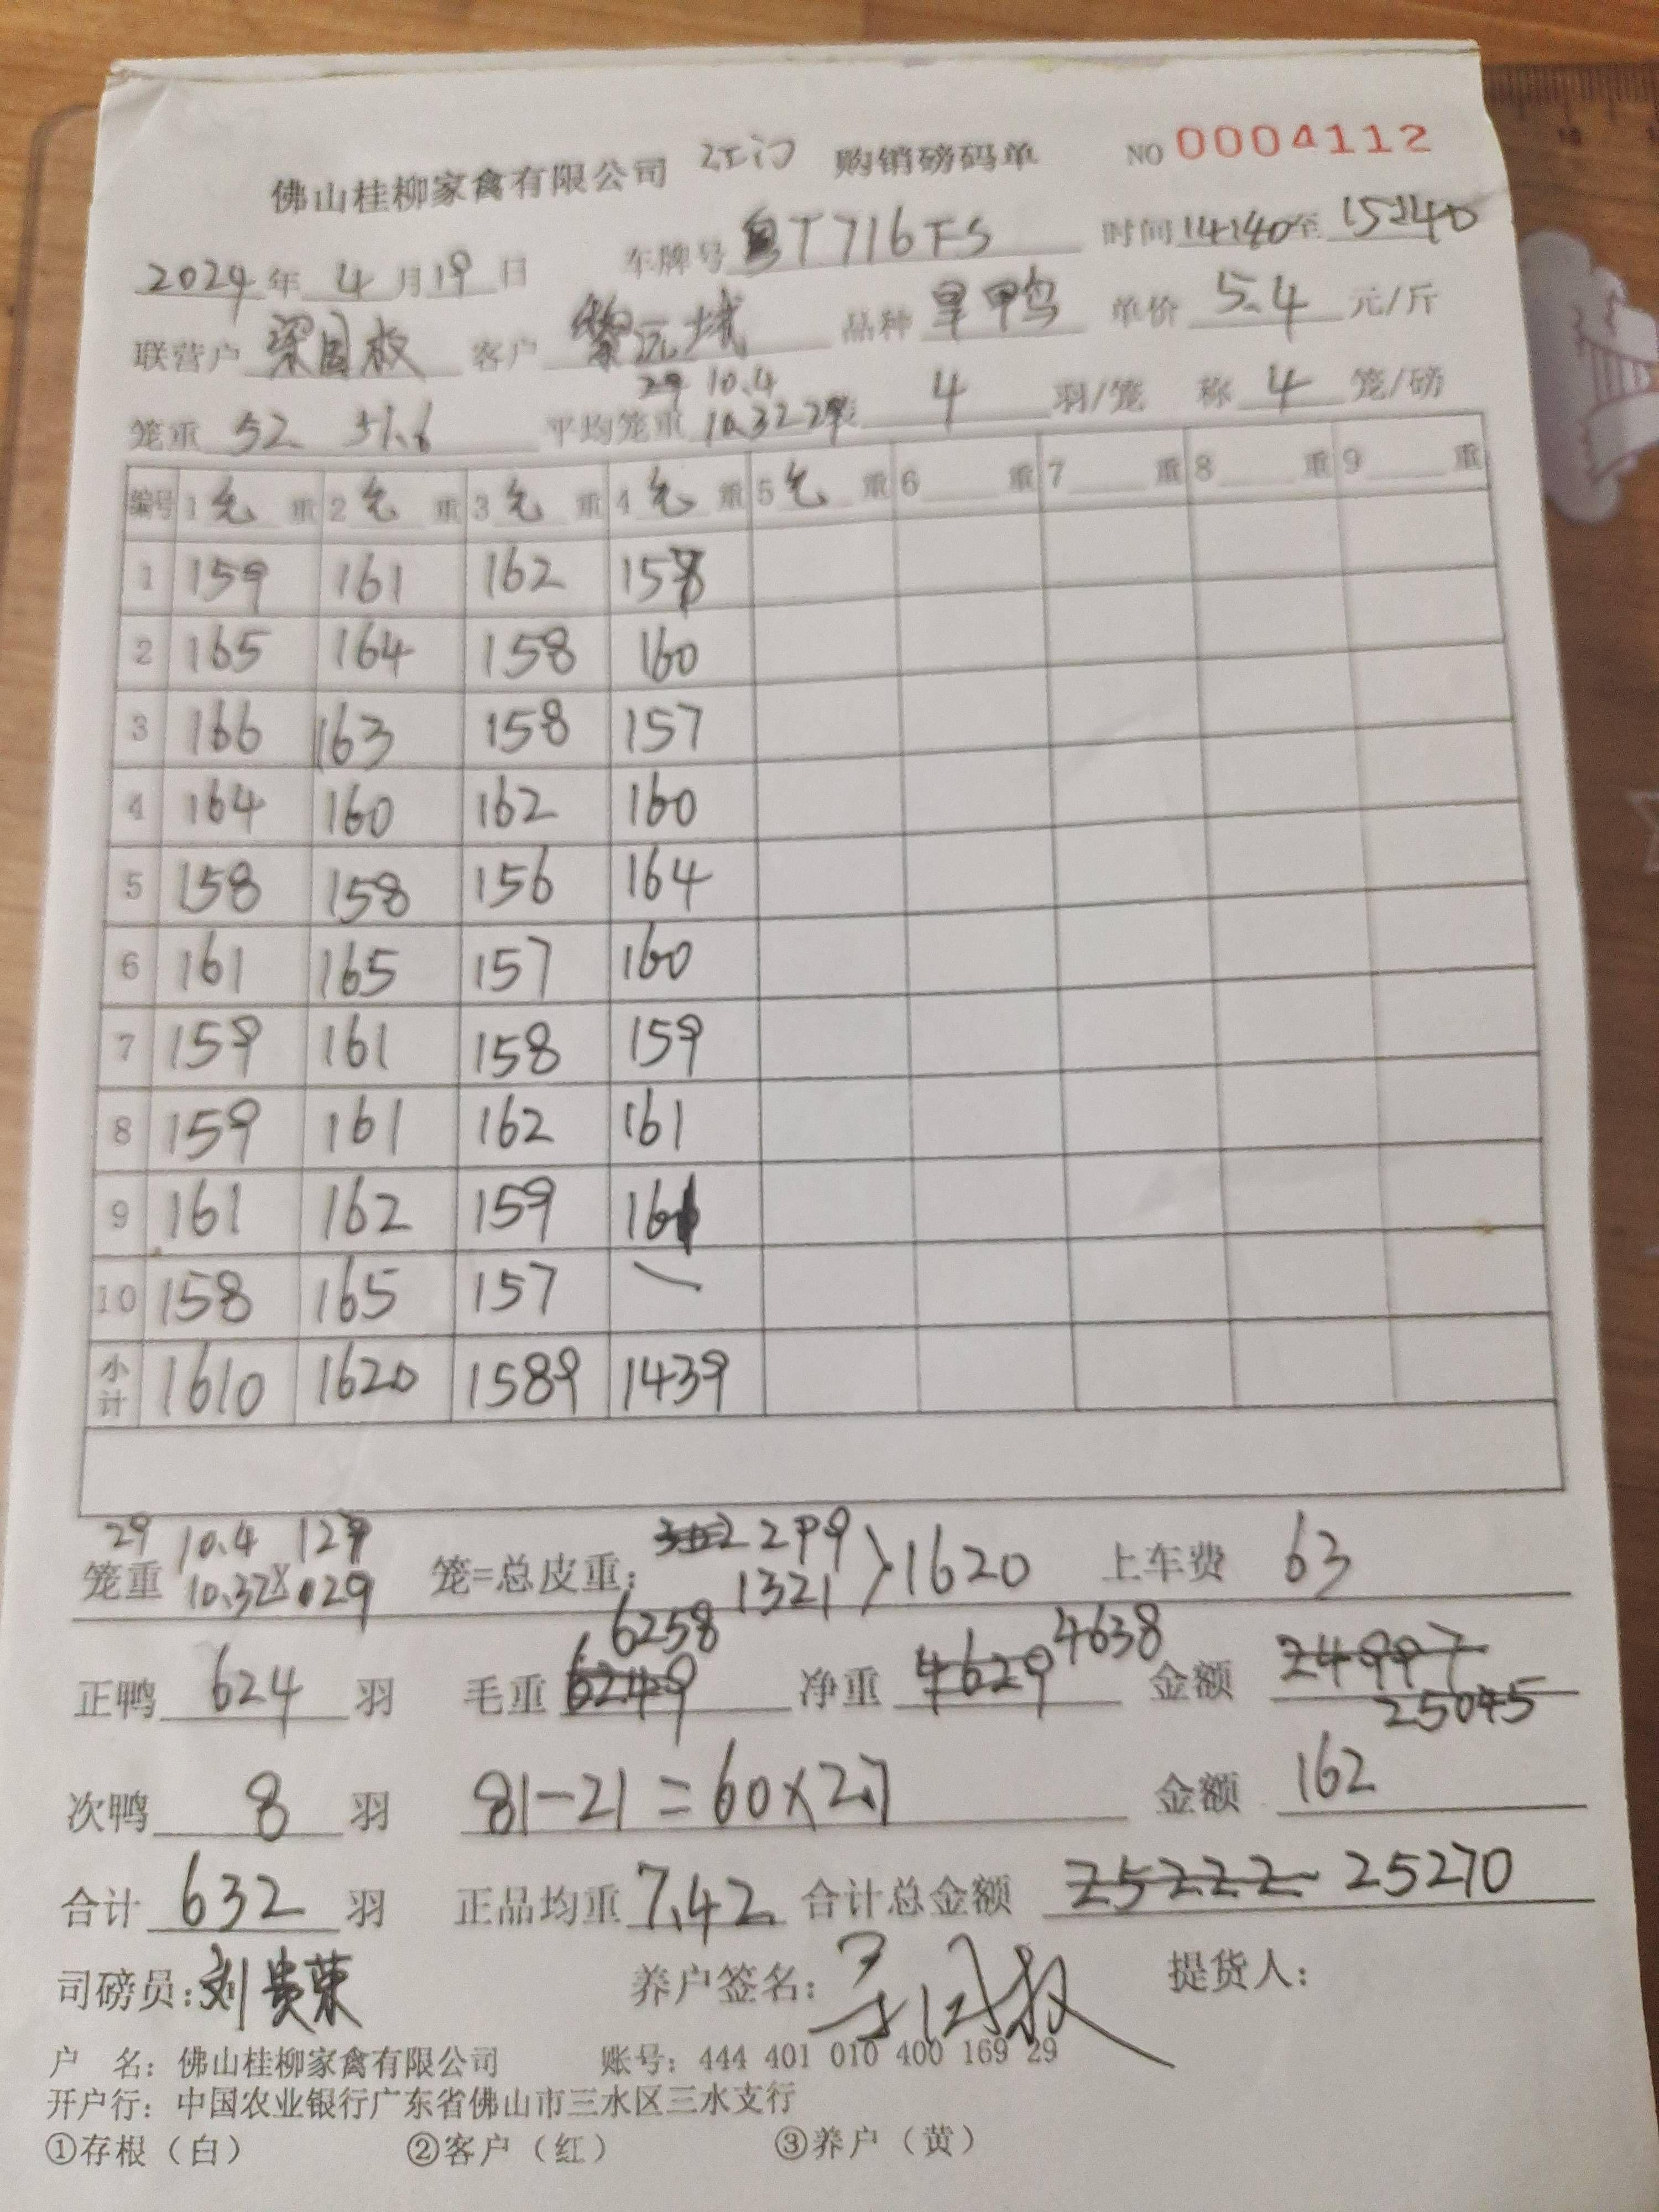 佛山桂柳家禽有限公司 江门 购销磅码单 NO 0004112
2024年4月19日 车牌号 粤T716FS 时间 14:40至15:40
联营户 梁国权 客户 黎沅城 品种 旱鸭 单价 5.4 元/斤
29 10.4
笼重 52 51.6 平均笼重 10.32 29 4 羽/笼 称 4 笼/磅
编号 1 毛 重 2 毛 重 3 毛 重 4 毛 重 5 毛 重 6 重 7 重 8 重 9 重
1 159 161 162 158
2 165 164 158 160
3 166 163 158 157
4 164 160 162 160
5 158 158 156 164
6 161 165 157 160
7 159 161 158 159
8 159 161 162 161
9 161 162 159
10 158 165 157 \
小计 1610 1620 1589 1439
29 10.4 129 2299
笼重 10.32X 029 笼=总皮重: 1321 >1620 上车费 63
6258 4638
正鸭 624 羽 毛重 6249 净重 4629 金额 24997
25045
次鸭 8 羽 81-21=60×2.7 金额 162
合计 632 羽 正品均重 7.42 合计总金额 25222 25270
司磅员:刘贵荣 养户签名: 提货人:
户 名: 佛山桂柳家禽有限公司 账号: 444 401 010 400 169 29
开户行: 中国农业银行广东省佛山市三水区三水支行
①存根(白) ②客户(红) ③养户(黄)